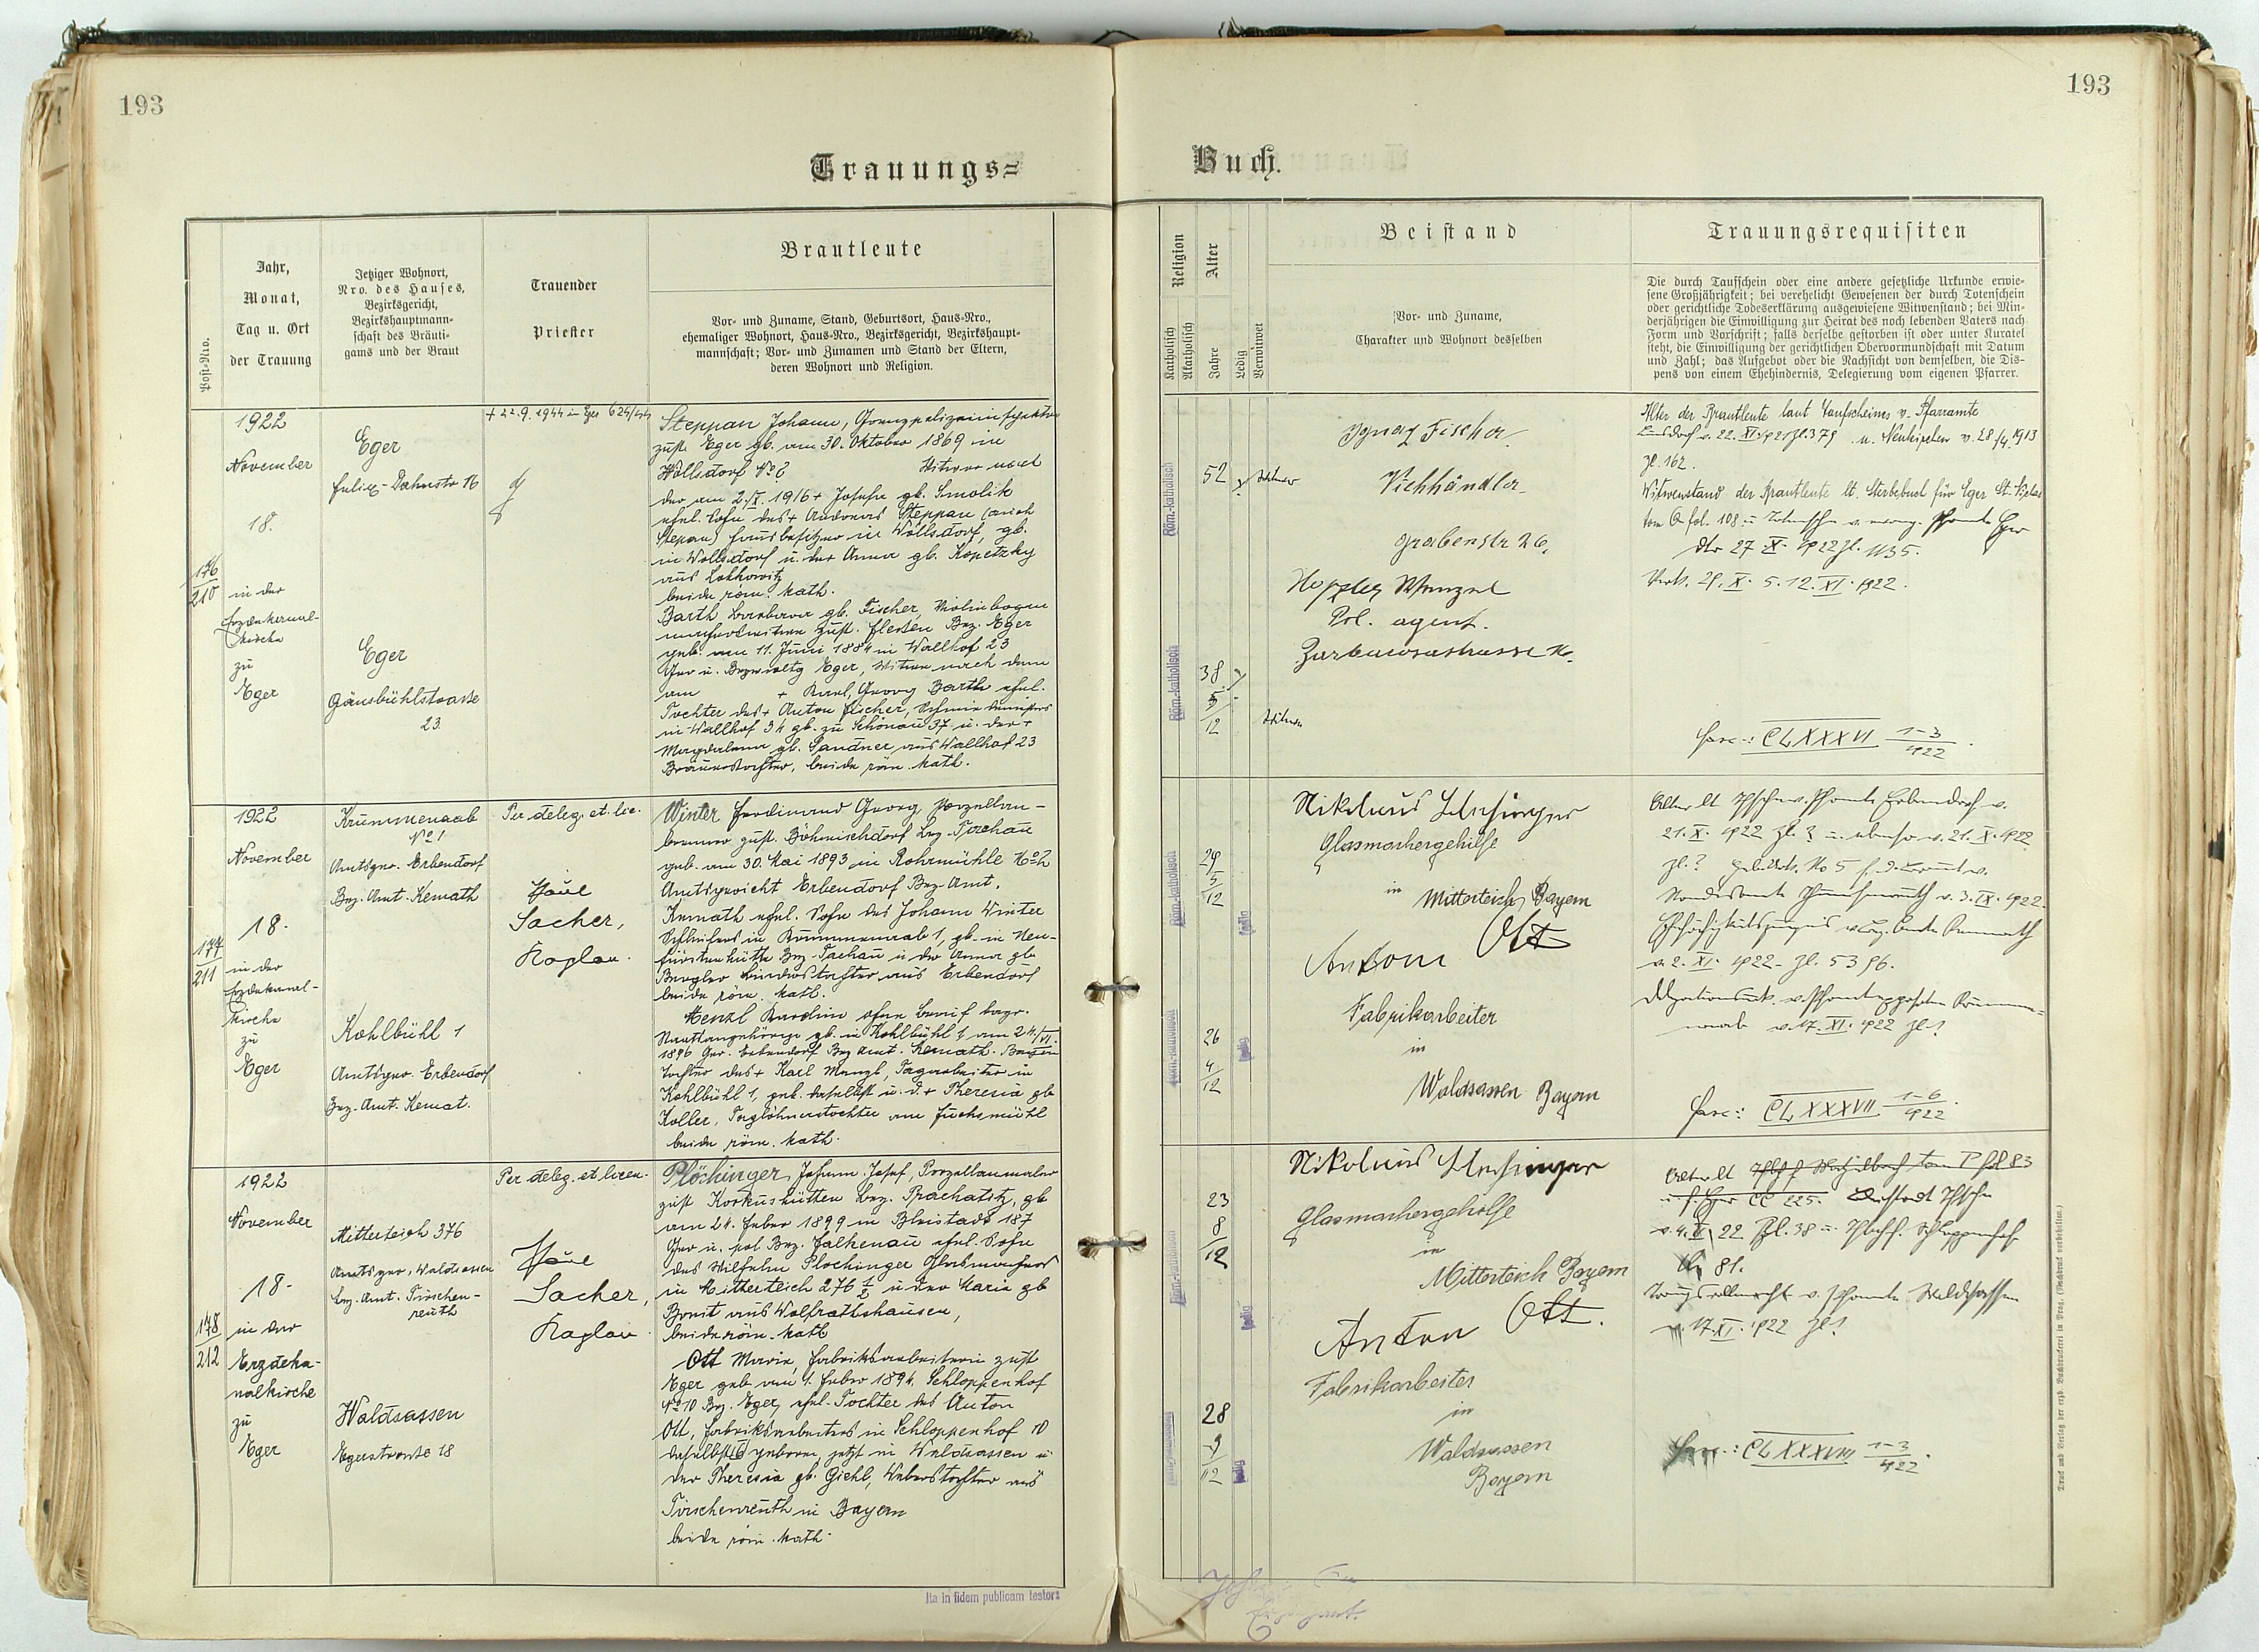 193
Trauungs=
Post=Nro.
Jahr,
Monat,
Tag u. Ort
der Trauung
Jetziger Wohnort,
Nro. des Hauses,
Bezirksgericht,
Bezirkshauptmann=
schaft des Bräuti=
gams und der Braut
Trauender
Priester
Brautleute
Vor= und Zuname, Stand, Geburtsort, Haus=Nro.,
ehemaliger Wohnort, Haus=Nro., Bezirksgericht, Bezirkshaupt=
mannschaft; Vor= und Zunamen und Stand der Eltern,
deren Wohnort und Religion.
176
210
1922
November
18.
in der
kirche
zu
Eger
Eger
Felix-Dahnstr 16
Eger
Gänsbühlstrasse
23
+ 22.9.1944 in Eger 624/44
Steppan Johann,
zust. Eger gb. am 30. Oktober 1869 in
Wöllsdorf No Witwer nach
der am 2./X. 1916 + Josefa gb. Smolik
ehel. Sohn des + Andreas Steppan (auch
Stepan) Hausbesitzer in Wöllsdorf, gb.
in Wöllsdorf u. der Anna gb. Kopetzky
aus
beide röm. kath.
Barth Barbara gb. Fischer, Violinbogen
zust. Fleißen Bez. Eger
geb. am 11. Juni 1884 in Wallhof 23
Ger u. Eger, Witwe nach dem
am + Karl, Georg Barth ehel.
Tochter des + Anton Fischer,
in Wallhof 34 gb. zu Schönau 37 u. der +
Magdalena gb. Sandner, aus Wallhof 23
beide röm. kath.
177
211
1922
November
18.
in der
Erzdekanal-
kirche
zu
Eger
Krummenaab
No 1
Amtsger. Erbendorf
Bez. Amt. Kemath
Kohlbühl 1
Amtsger. Erbendorf
Bez. Amt. Kemat.
Per deleg. et lic.
Paul
Sacher,
Kaplan.
Winter Ferdinand Georg, Porzellan-
brenner zust. Böhmischdorf Bez. Tachau
geb. am 30. Mai 1893 in Rohrmühle No 2
Amtsgericht Erbendorf Bez. Amt.
Kemath ehel. Sohn des Johann Winter
in Krummenaab 1, gb. in Neu-
fürstenhütte Bez. Tachau u. der Anna gb
aus Erbendorf
beide röm. kath.
Menzl Karolina ohne Beruf bayr.
Staatsangehörige gb. in Kohlbühl 1, am 24./VI.
1896 Ger. Erbendorf Bez Amt. Kemath. Bayern
Tochter des + Karl Menzl, Tagarbeiter in
Kohlbühl 1, geb. daselbst u. d. + Theresia gb
Koller, Taglöhnerstochter aus Fuchsmühl
beide röm. kath.
178
212
1922
November
18.
in der
Erzdeka-
nalkirche
zu
Eger
Mitterteich 376
Amtsger. Waldsassen
Bez. Amt. Tirschen-
reuth
Waldsassen
Egerstrasse 18
Per deleg. et licen.
Paul
Sacher,
Kaplan.
Plöchinger, Johann Josef, Porzellanmaler
zust Korkushütten Bez. Prachatitz, gb
am 21. Feber 1899 in Bleistadt 187
Ger u. pol Bez. Falkenau ehel. Sohn
des Wilhelm Plöchinger Glasmachers
in Mitterteich 276 1/2 u. der Maria gb
aus Wolfrathshausen,
beide röm. kath
Ott Maria, Fabriksarbeiterin zust
Eger geb. am 1. Feber 1894. Schloppenhof
No 10 Bez. Eger, ehel. Tochter des Anton
Ott, Fabriksarbeiters in Schloppenhof 10
daselbst geboren, jetzt in Waldsassen u
der Theresia gb. Giehl, Weberstochter aus
Tirschenreuth in Bayern
beide röm. kath.
Ita in fidem publicam testor:
193
Buch.
Religion
Katholisch
Akatholisch
Alter
Jahre
Ledig
Verwitwet
Beistand
Vor= und Zuname,
Charakter und Wohnort desselben
Trauungsrequisiten
Die durch Taufschein oder eine andere gesetzliche Urkunde erwie=
sene Großjährigkeit; bei verehelicht Gewesenen der durch Totenschein
oder gerichtliche Todeserklärung ausgewiesene Witwenstand; bei Min=
derjährigen die Einwilligung zur Heirat des noch lebenden Vaters nach
Form und Vorschrift; falls derselbe gestorben ist oder unter Kuratel
steht, die Einwilligung der gerichtlichen Obervormundschaft mit Datum
und Zahl; das Aufgebot oder die Nachsicht von demselben, die Dis=
pens von einem Ehehindernis, Delegierung vom eigenen Pfarrer.
Röm.-katholisch
52
Witwer
Röm.-katholisch
38
5
12
Witwe
Ignaz Fischer
Viehhändler
Grabenstr 26,
Wenzel
Pol. agent.
Barbarossastrasse 16.
Alter der Brautleute laut Taufscheines v. Pfarramte
v. 22. XI. 1921 Zl. 379 u. Neukirchen v. 28/4 1913
Zl. 162.
Witwenstand der Brautleute lt. Sterbebuch für Eger St. Niklas
tom Q fol. 108 u. Totenschein v. evang. Pfarramte Eger
dto 27. X. 1922 Zl. 1135.
Verk. 29. X. 5. 12. XI. 1922.
Fasc.: CLXXXVI 1-3
922
Röm.-katholisch
29
5
12
ledig
Röm.-katholisch
26
4
12
ledig
Nikolaus
Glasmachergehilfe
in Mitterteich, Bayern
Anton Ott
Fabrikarbeiter
in
Waldsassen Bayern
Alter lt Tfschn v. Pfarramte Erbendorf v.
21. X. 1922 Zl. ? u. ebenso v. 21. X. 1922
Zl. ?
v. 3. IX. 1922.
v. 2. XI. 1922. Zl. 5396.
v. 17. XI. 1922 Zl ?
Fasc.: CLXXXVII 1-6
922
Röm.-katholisch
23
8
12
ledig
28
9
12
ledig
Nikolaus
Glasmachergehilfe
in
Mitterteich Bayern
Anton Ott.
Fabrikarbeiter
in
Waldsassen
Bayern
Alter lt tom P fol 83
u. f. Eger CC 225.
v. 4. 22 Zl. 38 u. Schloppenhof
81.
v. Pfarramte Waldsassen
v. 17. XI. 1922 Zl ?
Fasc.: CLXXXVIII 1-3
922
Druck und Verlag der erzb. Buchdruckerei in Prag. (Nachdruck verboten.)